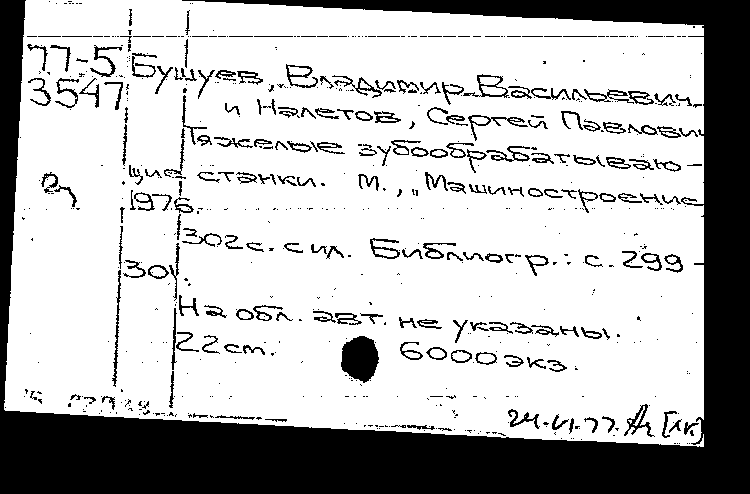 77-5 Бушуев, Владимир Васильевич
3547 и Налетов, Сергей Павлович
Тяжелые зубообрабатываю-
щие станки. М., „Машиностроение
1976.
302с. с ил. Библиогр.: с. 299-
301.
На обл. авт. не указаны.
22см. 6000экз.
24.VI.77.